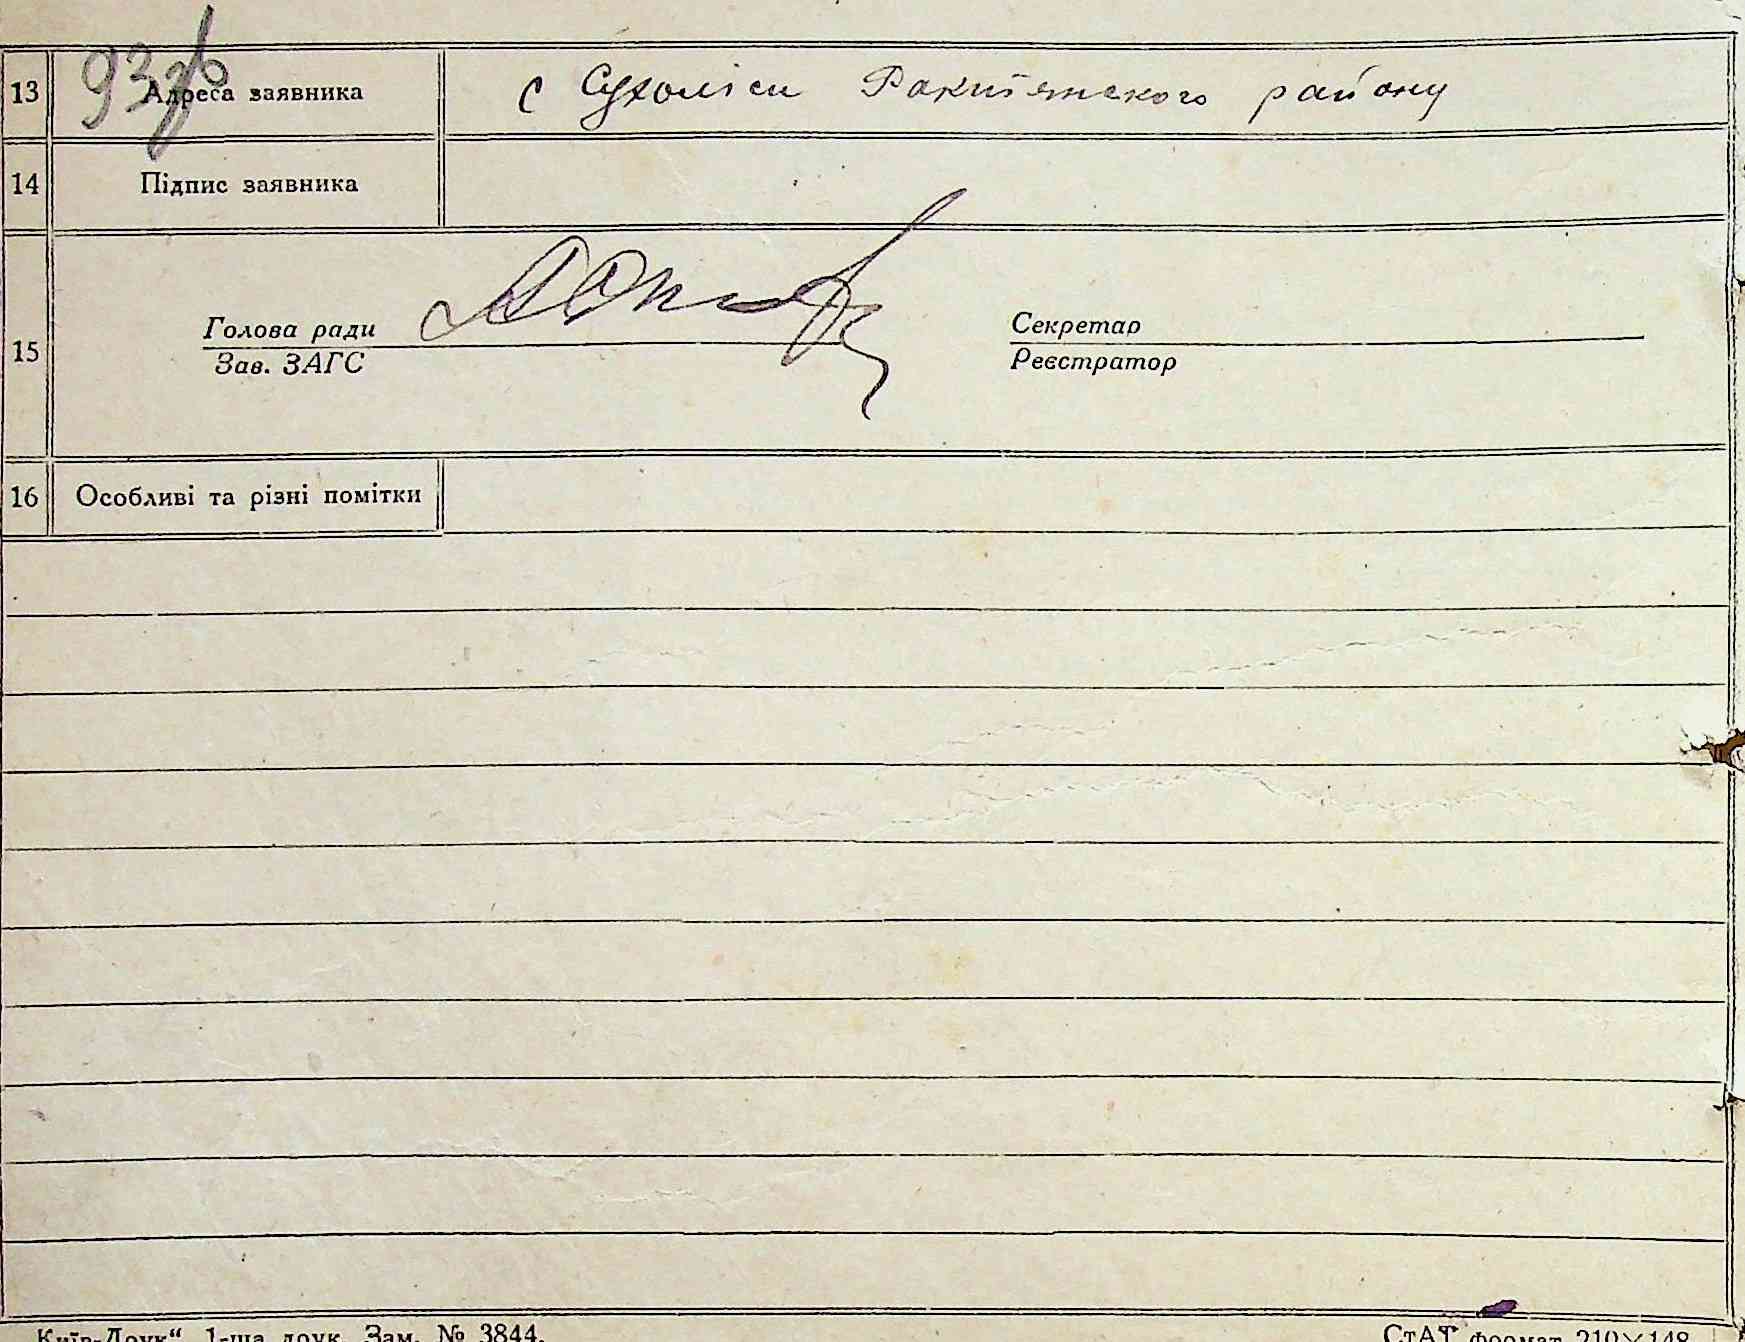 93зв
13 Адреса заявника с Сухоліси Ракитянського району
14 Підпис заявника
Голова ради Секретар
15
Зав. ЗАГС Реєстратор
16 Особливі та різні помітки
Київ-Друк“ 1-ша друк. Зам. № 3844. СтАТ формат 210×148